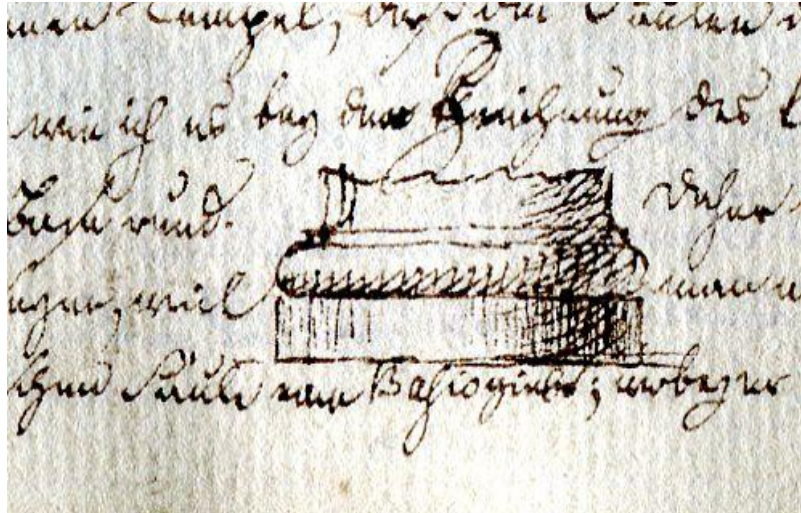 Tempel, daß die Säulen
wie ich es bey der Zeichnung des
Base rund. Daher
weil man
schen Säule eine Basis giebt; wobey er